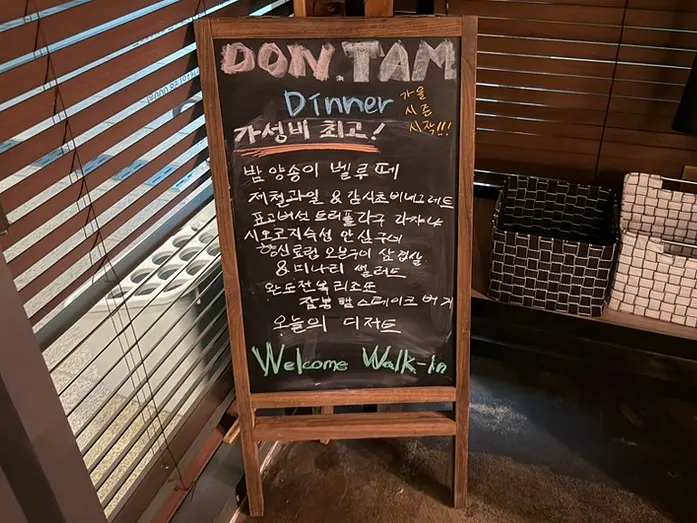 DON.TAM
Dinner
가을
시즌
시작!!!
가성비 최고!
밤 양송이 벨루떼
제철과일 & 감식초비네그레트
표고버섯 트러플라구 라자냐
시오코지숙성 안심구이
향신료럽 오븐구이 삼겹살
& 미나리 샐러드
완도전복 리조또
잠봉 햄스테이크 버거
오늘의 디저트
Welcome Walk-In